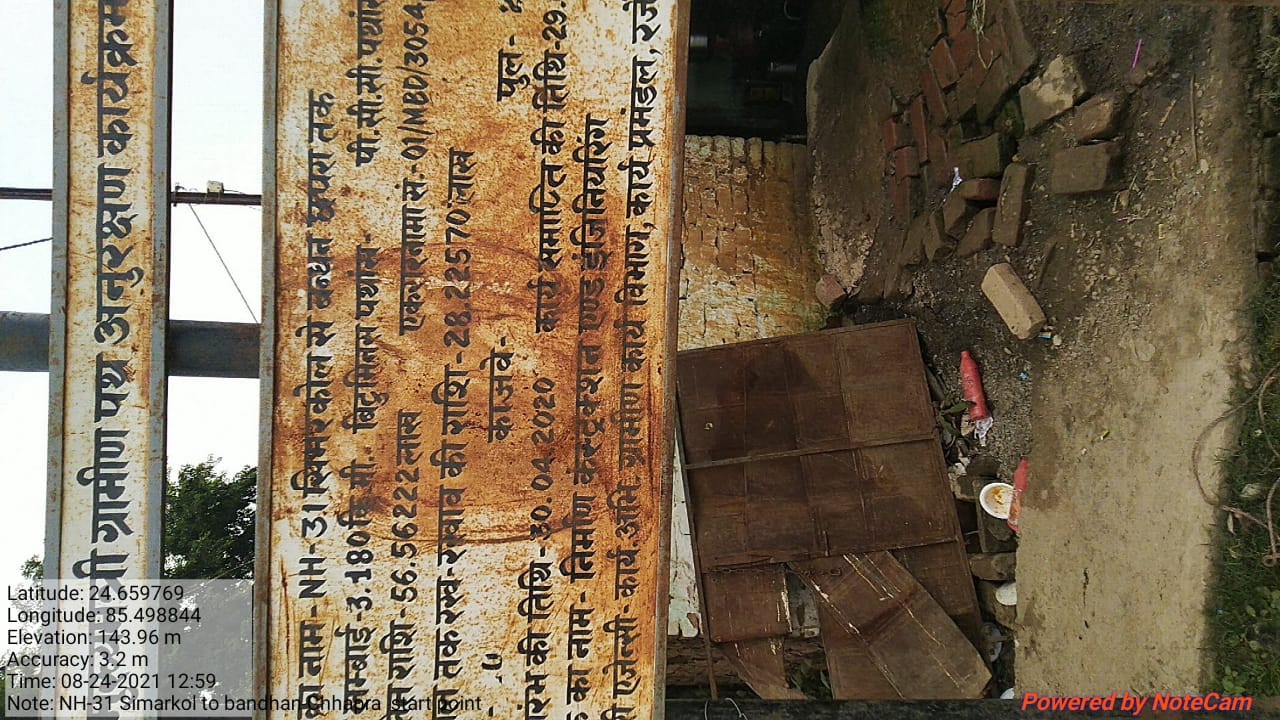 ग्रामीण पथ अनुरक्षण कार्यक्रम
का नाम - NH-31 सिमरकोल से बन्धन छपरा तक
लम्बाई - 3.180 कि.मी. बिटुमिनस पथांश - पी.सी.सी. पथांश
राशि - 56.56222 लाख एकरारनामा सं.- 01/MBD/3054
तक रख-रखाव की राशि - 28.22570 लाख
काजवे - पुल -
की तिथि - 30.04.2020 कार्य समाप्ति की तिथि - 29.
का नाम - निर्माण कंस्ट्रक्शन एण्ड इंजिनियरिंग
एजेन्सी - कार्य. अभि. ग्रामीण कार्य विभाग, कार्य प्रमंडल,
Latitude: 24.659769
Longitude: 85.498844
Elevation: 143.96 m
Accuracy: 3.2 m
Time: 08-24-2021 12:59
Note: NH-31 Simarkol to bandhan Chhabra start point
Powered by NoteCam